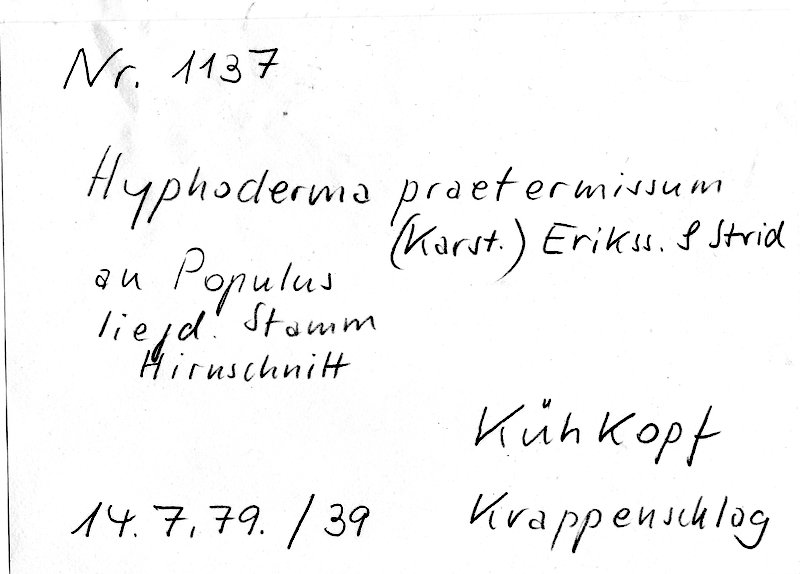 Nr. 1137
Hyphoderma praetermissum
(Karst.) Erikss. & Strid
an Populus
liegd. Stamm
Hirnschnitt
Kühkopf
14.7.79. / 39
Krappenschlag